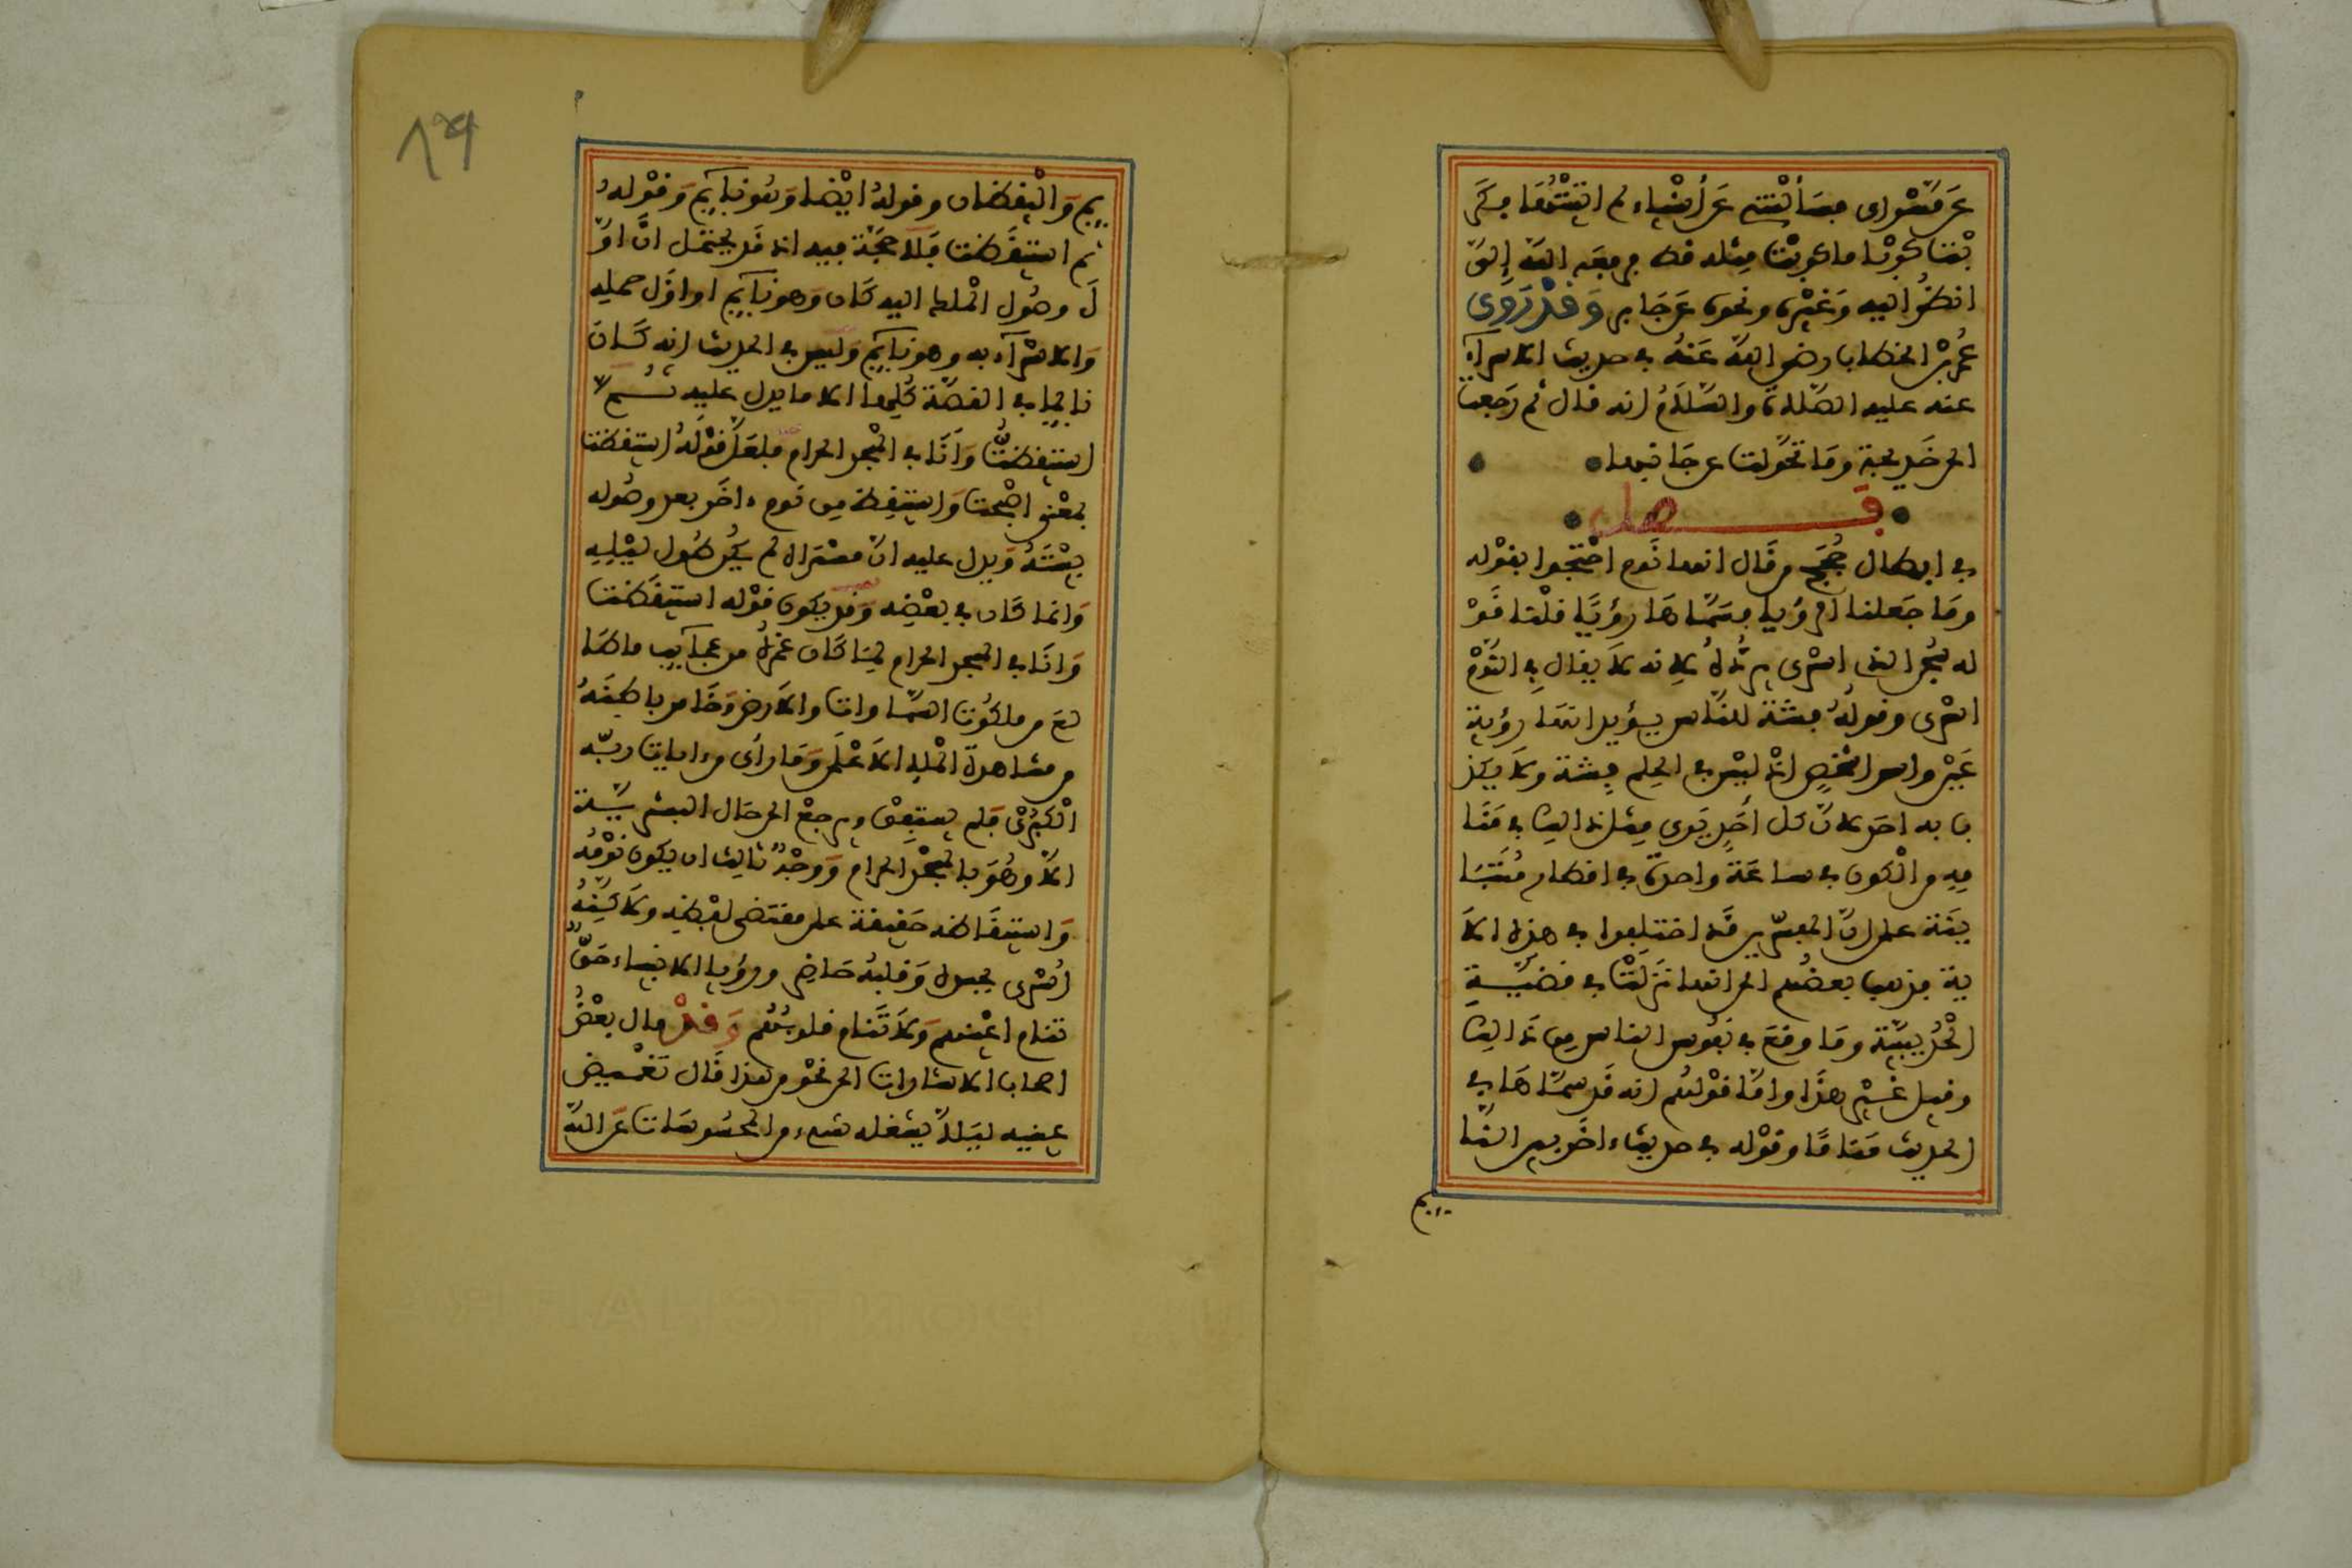 عَن مَّسْراى فسَأَلتْنى عَن أَشْياء لم اثبتْهَا فكَر
بْت كرْبا ماكربْت مِثله قط فرفعَه اللّه إلىّ
انظرُ اليه وَنحْوه عَن جَابر وَقدْ رَوى
عُمر بْن الخطاب رضى اللّه عَنْه فى حديث الاسرآء
عنه عليه الصّلاة والسّلامُ انه قال ثم رَجعت
الى خَديجة ومَا تحوّلت عن جَانبها
فَصل
فى ابطال حُجج من قَال انها نَوم احْتجوا بقوْله
ومَا جَعلنا الرءيا فسَمّاها رؤيَا قلْت قَوْ
له سُبْحن الذى اسْرى يردُّهُ لانه لاَ يقال فِى النّوْم
اسْرى وقولهُ فتنة للنّاس يؤيد انهَا رؤية
عَيْن واسراء شخْصٍ اذْ ليْس فى الحلم فِتنة ولا يكذ
ب به احَد لانّ كل أحَدٍ يَرى مِثل ذالك فى مَنَا
مِه من الْكون فى ساعَة واحدة فى اقطار مُتَبَا
ينَة على انّ المفسّرين قَد اختلفوا فى هذه الاَ
ية فذهب بعضُهم الى انها نزَلتْ فى قضيّةِ
الْحُديبيّة ومَا وقعَ فى نفُوس الناس مِن ذَالك
وقيل غيْر هذَا وامّا قوْلهُم انه قَد سمّاهَا فى
الحديث مَنامًا وقوْله فى حديث ءاخَر بين النّا
ـيم
٨٩
يِم وَالْيقظان وقولهُ ايْضا وَهُو نآيِم وَقوْلهُ
ثم استيقَظت فَلا حجّة فيه اذ قَد يحتمَل انَّ اوّ
لَ وصُول الْملك اليه كَان وَهو نآيِم او اوّل حمله
وَالاسْرآء به وهو نآيِم وَليس فى الحديث انه كَانَ
نآيما فى القصّة كُلّها الا ما يدل عليه ثُـمّ
استيقظتُ وَأنَا فى الْمسْجد الحرام فلعَلّ قوْلهُ استيقظت
بمعْنى اصْبحت وَاستيقظ مِن نوم ءاخَر بعد وصُوله
بيْتَهُ وَيدل عليه انّ مسْراه لم يكُن طُول ليْلِهِ
وَانما كَان فى بعْضِه وَقد يكون قوْله استيقَظت
وَانَا فى المسجد الحرام لمِا كَان غمرهُ من عجآيب ما طَا
لعَ من ملكُوت السّماوات والاَرض وَخَامر باطنَهُ
من مشاهدة الْملاء الاَعْلى وَمَا رأى من ءايات ربّه
الْكبْرى فلم يستفِقْ ويرجعْ الى حَال البشريّـة
الاّ وهُوَ بالْمسجْد الحرام وَوجْهٌ ثالِث ان يكون نوْمُهُ
وَاستيقَاظه حَقيقة على مقتَضى لفْظه ولاكنّهُ
أسْرى بجسده وَقلبُه حَاضر ورؤيا الانبياء حَقٌّ
تنام اعْينهم وَلاَ تَنام قلوبُهُم وَقدْ مال بعْضُ
اصحاب الاشارات الى نحْو من هذا قَال تغْميض
عينيه ليَلاّ يشغله شىء من المحسُوسَات عَن اللّه